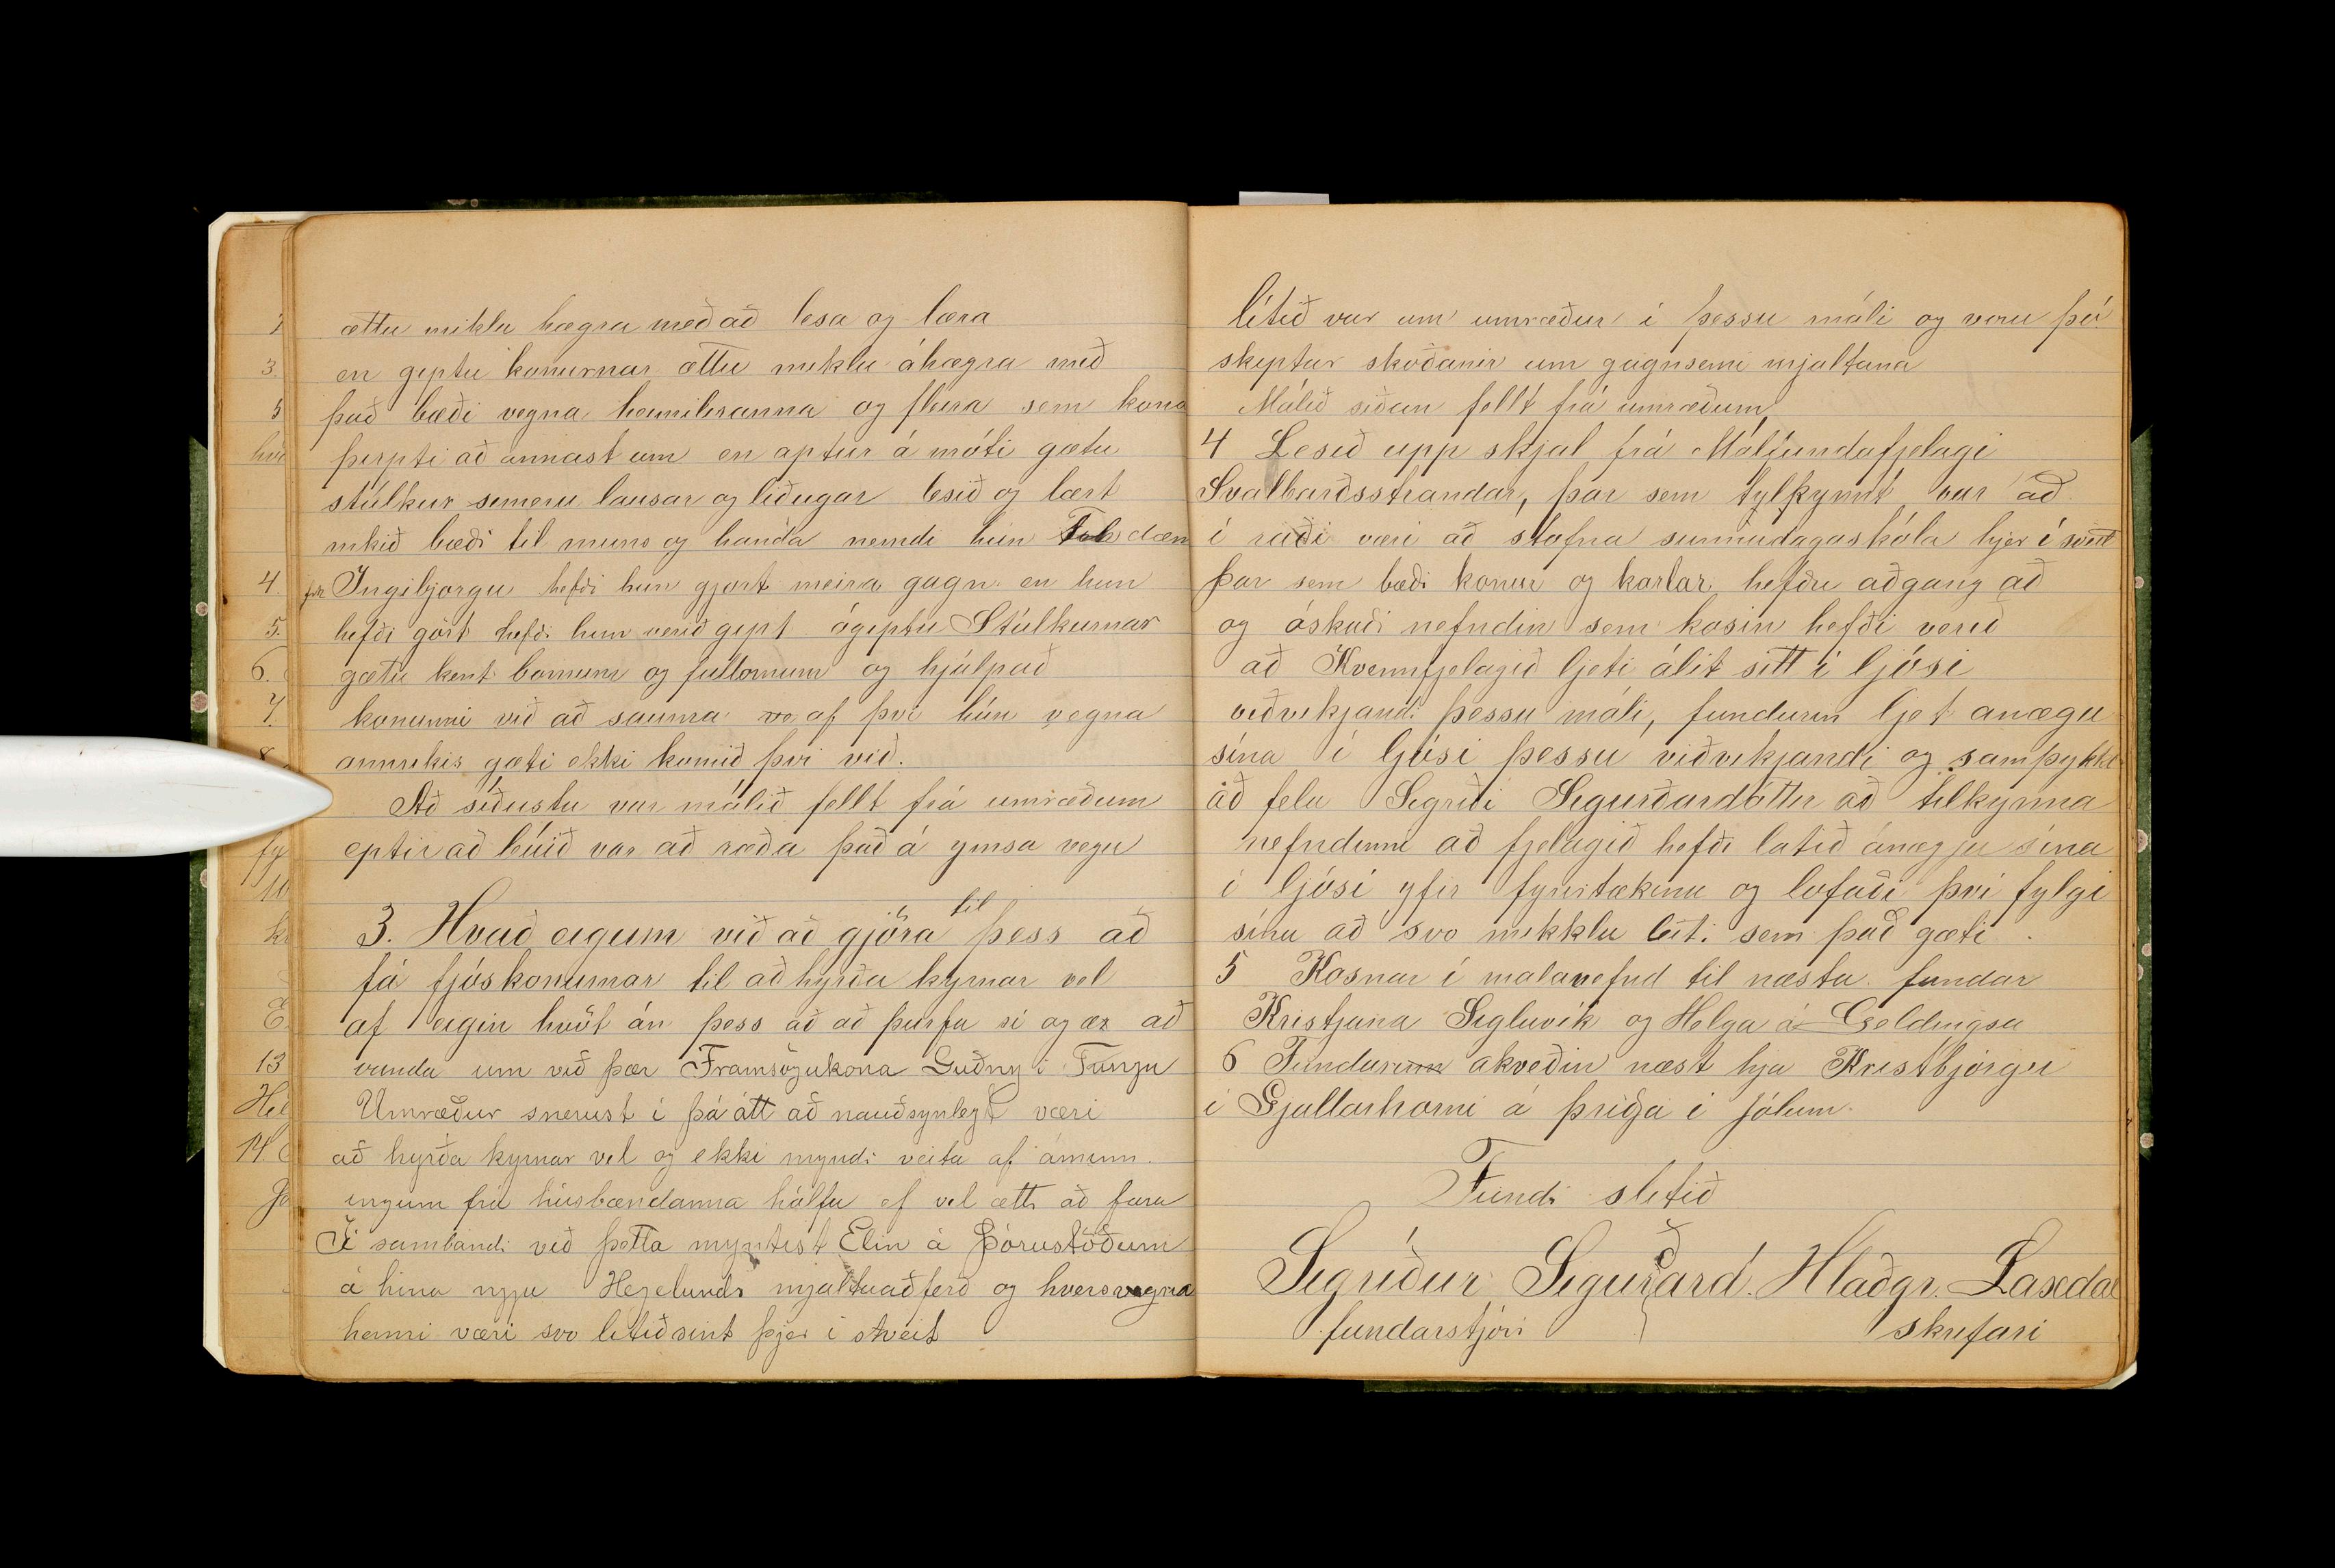 ættu miklu hægra með að lesa og læra
en giptu konurnar ættu miklu óhægra með
það bæði vegna heimilisanna og fleira sem kona
þirpti að annast um en aptur á móti gætu
stúlkur semeru lausar og liðugar lesið og lært
mkið bæði til muns og handa nemdi hún dæm
frk Ingibjorgu hefði hun gjort meira gagn en hun
hefði gört hefði hun verið gipt ógiptu Stúlkurnar
gætu kent bornum og fullornum og hjálpað
konunni við að sauma af því hún vegna
annrikis gæti ekki komið þvi við.
Að siðustu var málið fellt frá umræðum
eptir að búið var að ræða það á ymsa vegu
3. Hvað eigum við að gjöra til þess að
fá fjóskonurnar til að hyrða kyrnar vel
af eigin hvöt án þess að að þurfa si og æ að
vanda um við þær Framsögukona Guðny i Tungu
Umræður snerust i þá átt að nauðsynlegt væri
að hyrða kyrnar vel og ekki myndi veita af áminn-
ingum frá húsbændanna hálfu ef vel ætti að fara
Í sambandi við þetta myntist Elin á Þórustöðum
á hina nyju Hegelunds mjaltaaðferð og hversvegna
henni væri svo litið sint hjer i sveit
lítið var um umræður i þessu máli og voru þó
skiptar skoðanir um gagnsemi mjaltana
Málið síðan fellt frá umræðum
4 Lesið upp skjal frá Málfundafjelagi
Svalbarðsstrandar, þar sem tylkynnt var að
í ráði væri að stofna sunnudagaskóla hjer í sveit
þar sem bæði konur og karlar hefðu aðgang að
og óskaði nefndin sem kosin hefði verið
að Kvennfjelagið ljeti álit sitt i ljósi
viðvikjandi þessu máli, fundurin ljet anægu
sína í ljósi þessu viðvikjandi og samþykkt
að fela Sigriði Sigurðardóttir að tilkynna
nefndinni að fjelagið hefði latið ánægju sína
i ljósi yfir fyrirtækinu og lofaði þvi fylgi
sínu að svo mikklu leiti sem það gæti
5 Kosnar í malanefnd til næsta fundar
Kristjana Sigluvík og Helga á Geldingsa
6 Fundur akveðin næst hja Kristbjörgu
i Gjallarhorni á þriðja i jólum
Fundi slitið
Sigríður Sigurðard. Hlaðgr. Laxdal
fundarstjóri skrifari